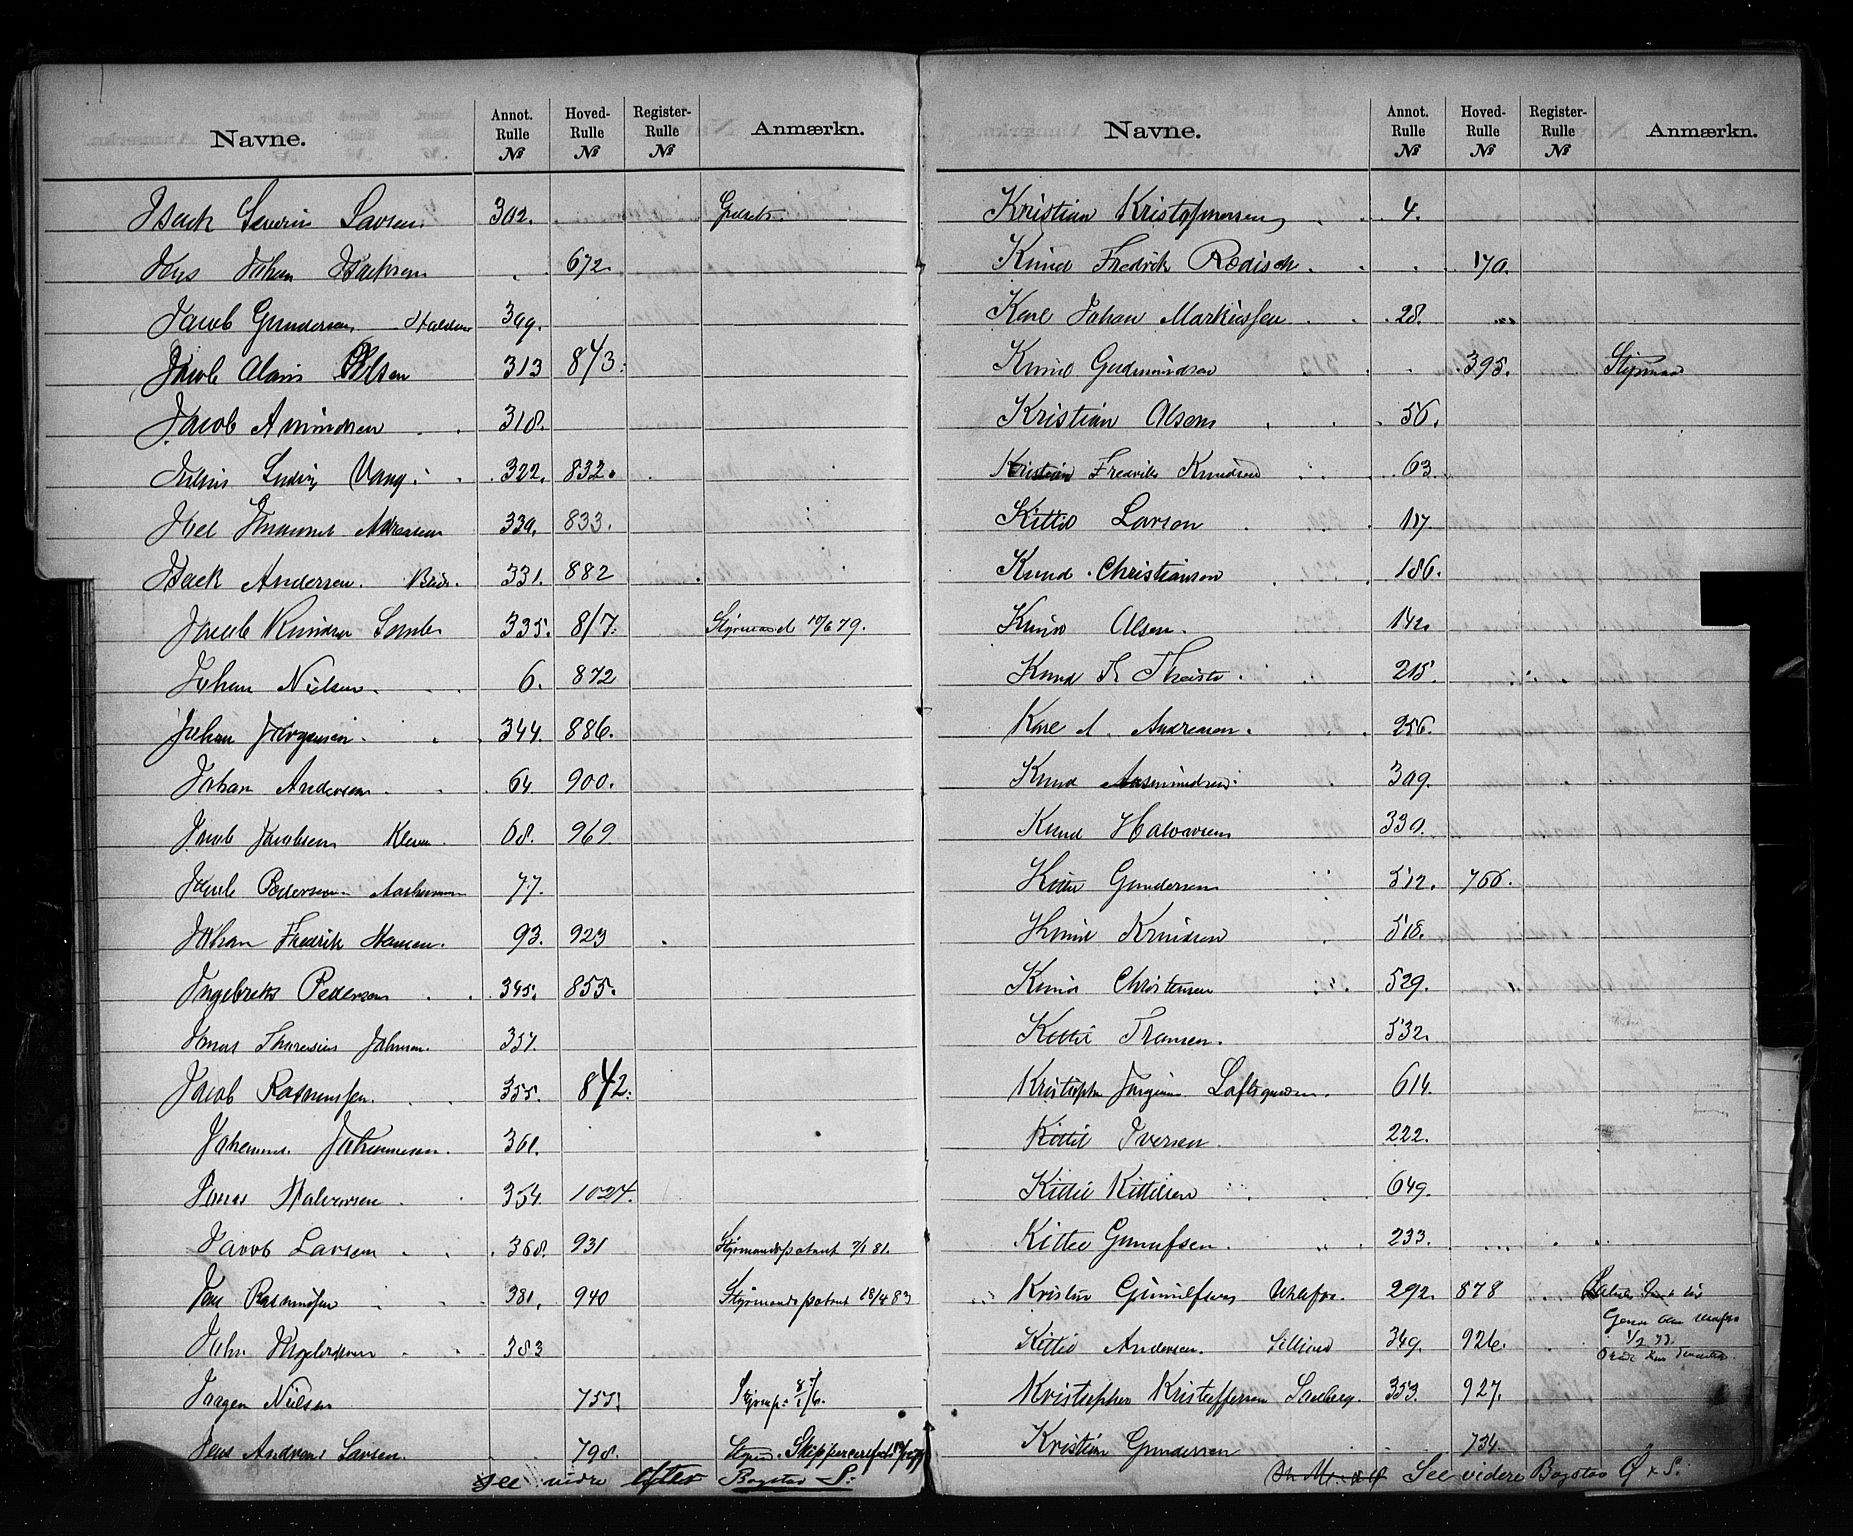 Navne. Annot. Rulle № Hoved- Rulle № Register- Rulle № Anmærkn.
Isack Severin Larsen 302.
Jens Johan Isaksen 672.
Jacob Gundersen 309.
Jacob Olsen 313 873.
Jacob Amundsen 318.
Julius Ludvig Vang 322. 832.
Joel Emanuel Andreasen 330. 833.
Isack Andersen. 331. 882
Jacob Knudsen 335. 817. Styrmand 17/6 79.
Johan Nielsen. 6. 872
Johan Jørgensen. 344. 886.
Johan Andersen 64. 900.
Jacob Jacobsen 68. 969.
Jacob Pedersen 77.
Johan Fredrik Hansen. 93. 923
Ingebrekt Pedersen 345. 855.
Jonas Johnsen. 351.
Jacob Rasmussen. 355. 842.
Johannes Johannesen. 361.
Jonas Halvorsen 354. 1024.
Jacob Larsen 368. 931 Styrmandspatent 7/1 81.
Jens Rasmussen 381. 940 Styrmandspatent 18/4 83
John 383
Jørgen Nielsen 755.
Jens Andreas Larsen. 798.
See vidre efter Bogstav S:
Navne. Annot. Rulle № Hoved- Rulle № Register- Rulle № Anmærkn.
Kristian Kristophersen 4.
Knud Fredrik Rødisch 170.
Karl Johan Markussen 28.
Knud Gudmundsen 395. Styrmand
Kristian Olsen 56.
Kristian Fredrik Knudsen 63.
Kittil Larsen 117
Knud Christiansen 186.
Knud Olsen. 142.
Knud T. 215.
Karl A. Andreasen. 256.
Knud Aasmundsen 309.
Knud Halvorsen 330.
Kittil Gundersen 512. 766.
Knud Knudsen 518.
Knud Christensen 529.
Kittil Fransen. 532.
Kristopher Jørgensen 614.
Kittil Iversen 222.
Kittil Kittilsen 649.
Kittil Gunulfsen. 233.
Kristen Gunulfsen Ulefos. 292. 878
Kittil Andersen. 349. 926.
Kristopher Kristoffersen 353. 927.
Kristian Gundersen 734.
See videre Bogstav Q & S.